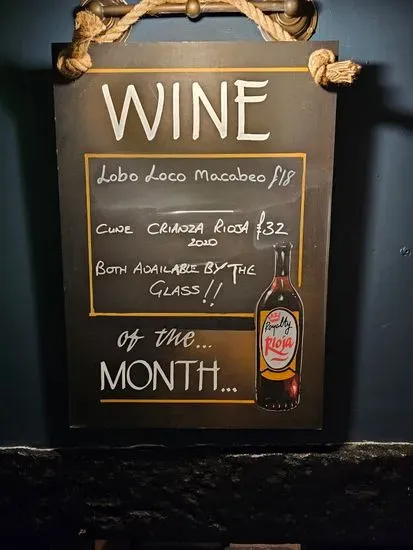 WINE
Lobo Loco Macabeo £18
CUNE CRIANZA RIOJA £32
2020
BOTH AVAILABLE BY THE
GLASS!!
of the...
MONTH...
Royalty
Rioja